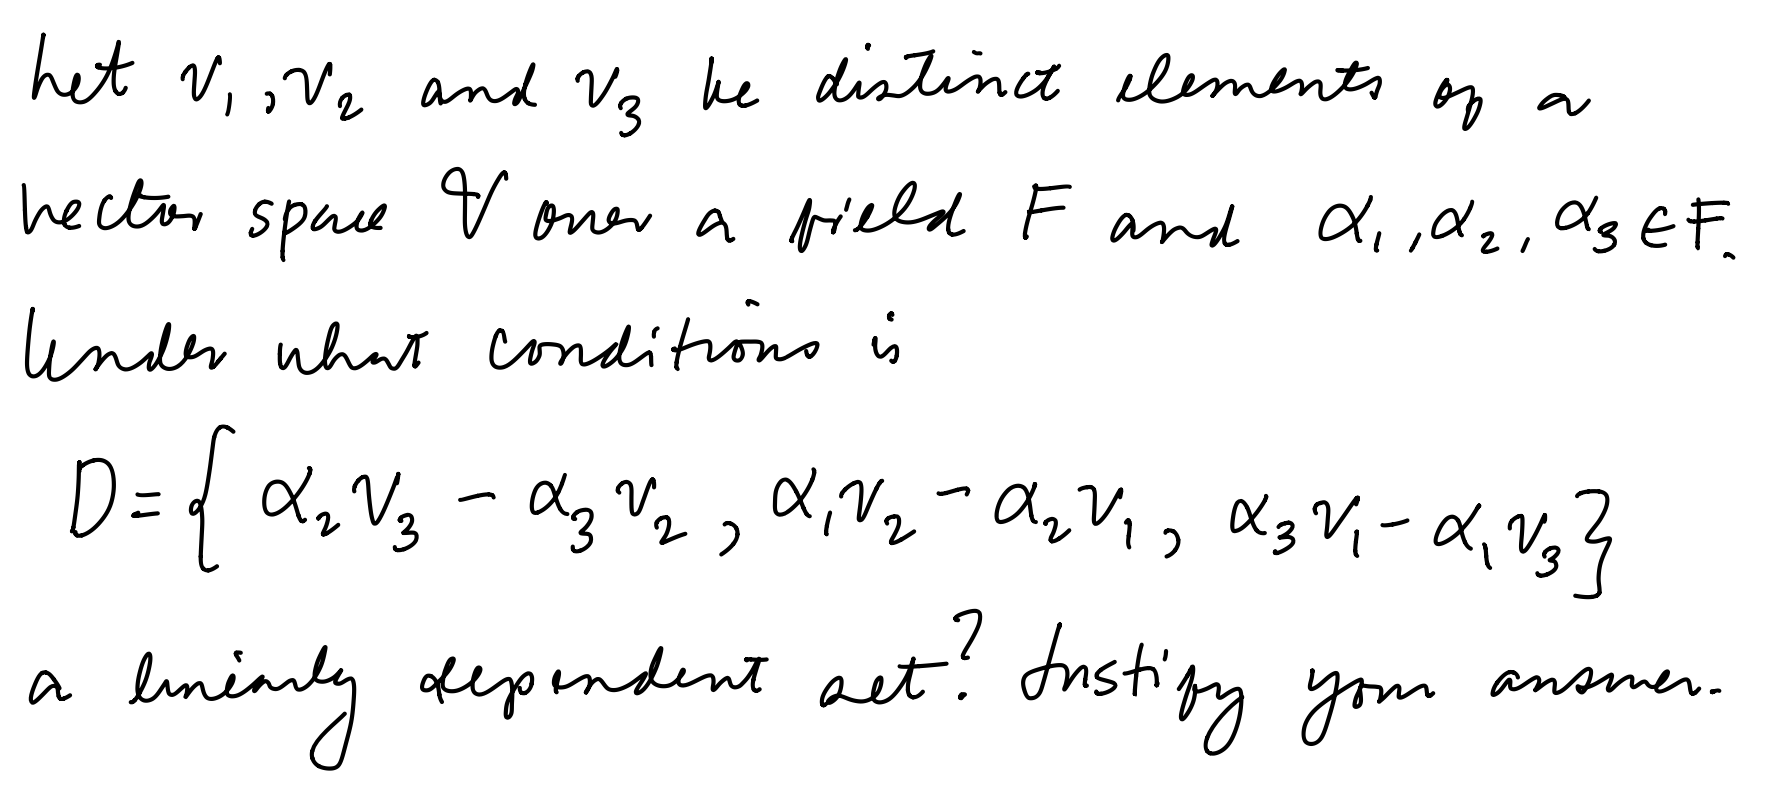 Let v₁, v₂ and v₃ be distinct elements of a
vector space V over a field F and α₁, α₂, α₃ ∈ F.
Under what conditions is
D = { α₂v₃ - α₃v₂, α₁v₂ - α₂v₁, α₃v₁ - α₁v₃ }
a linearly dependent set? Justify your answer.